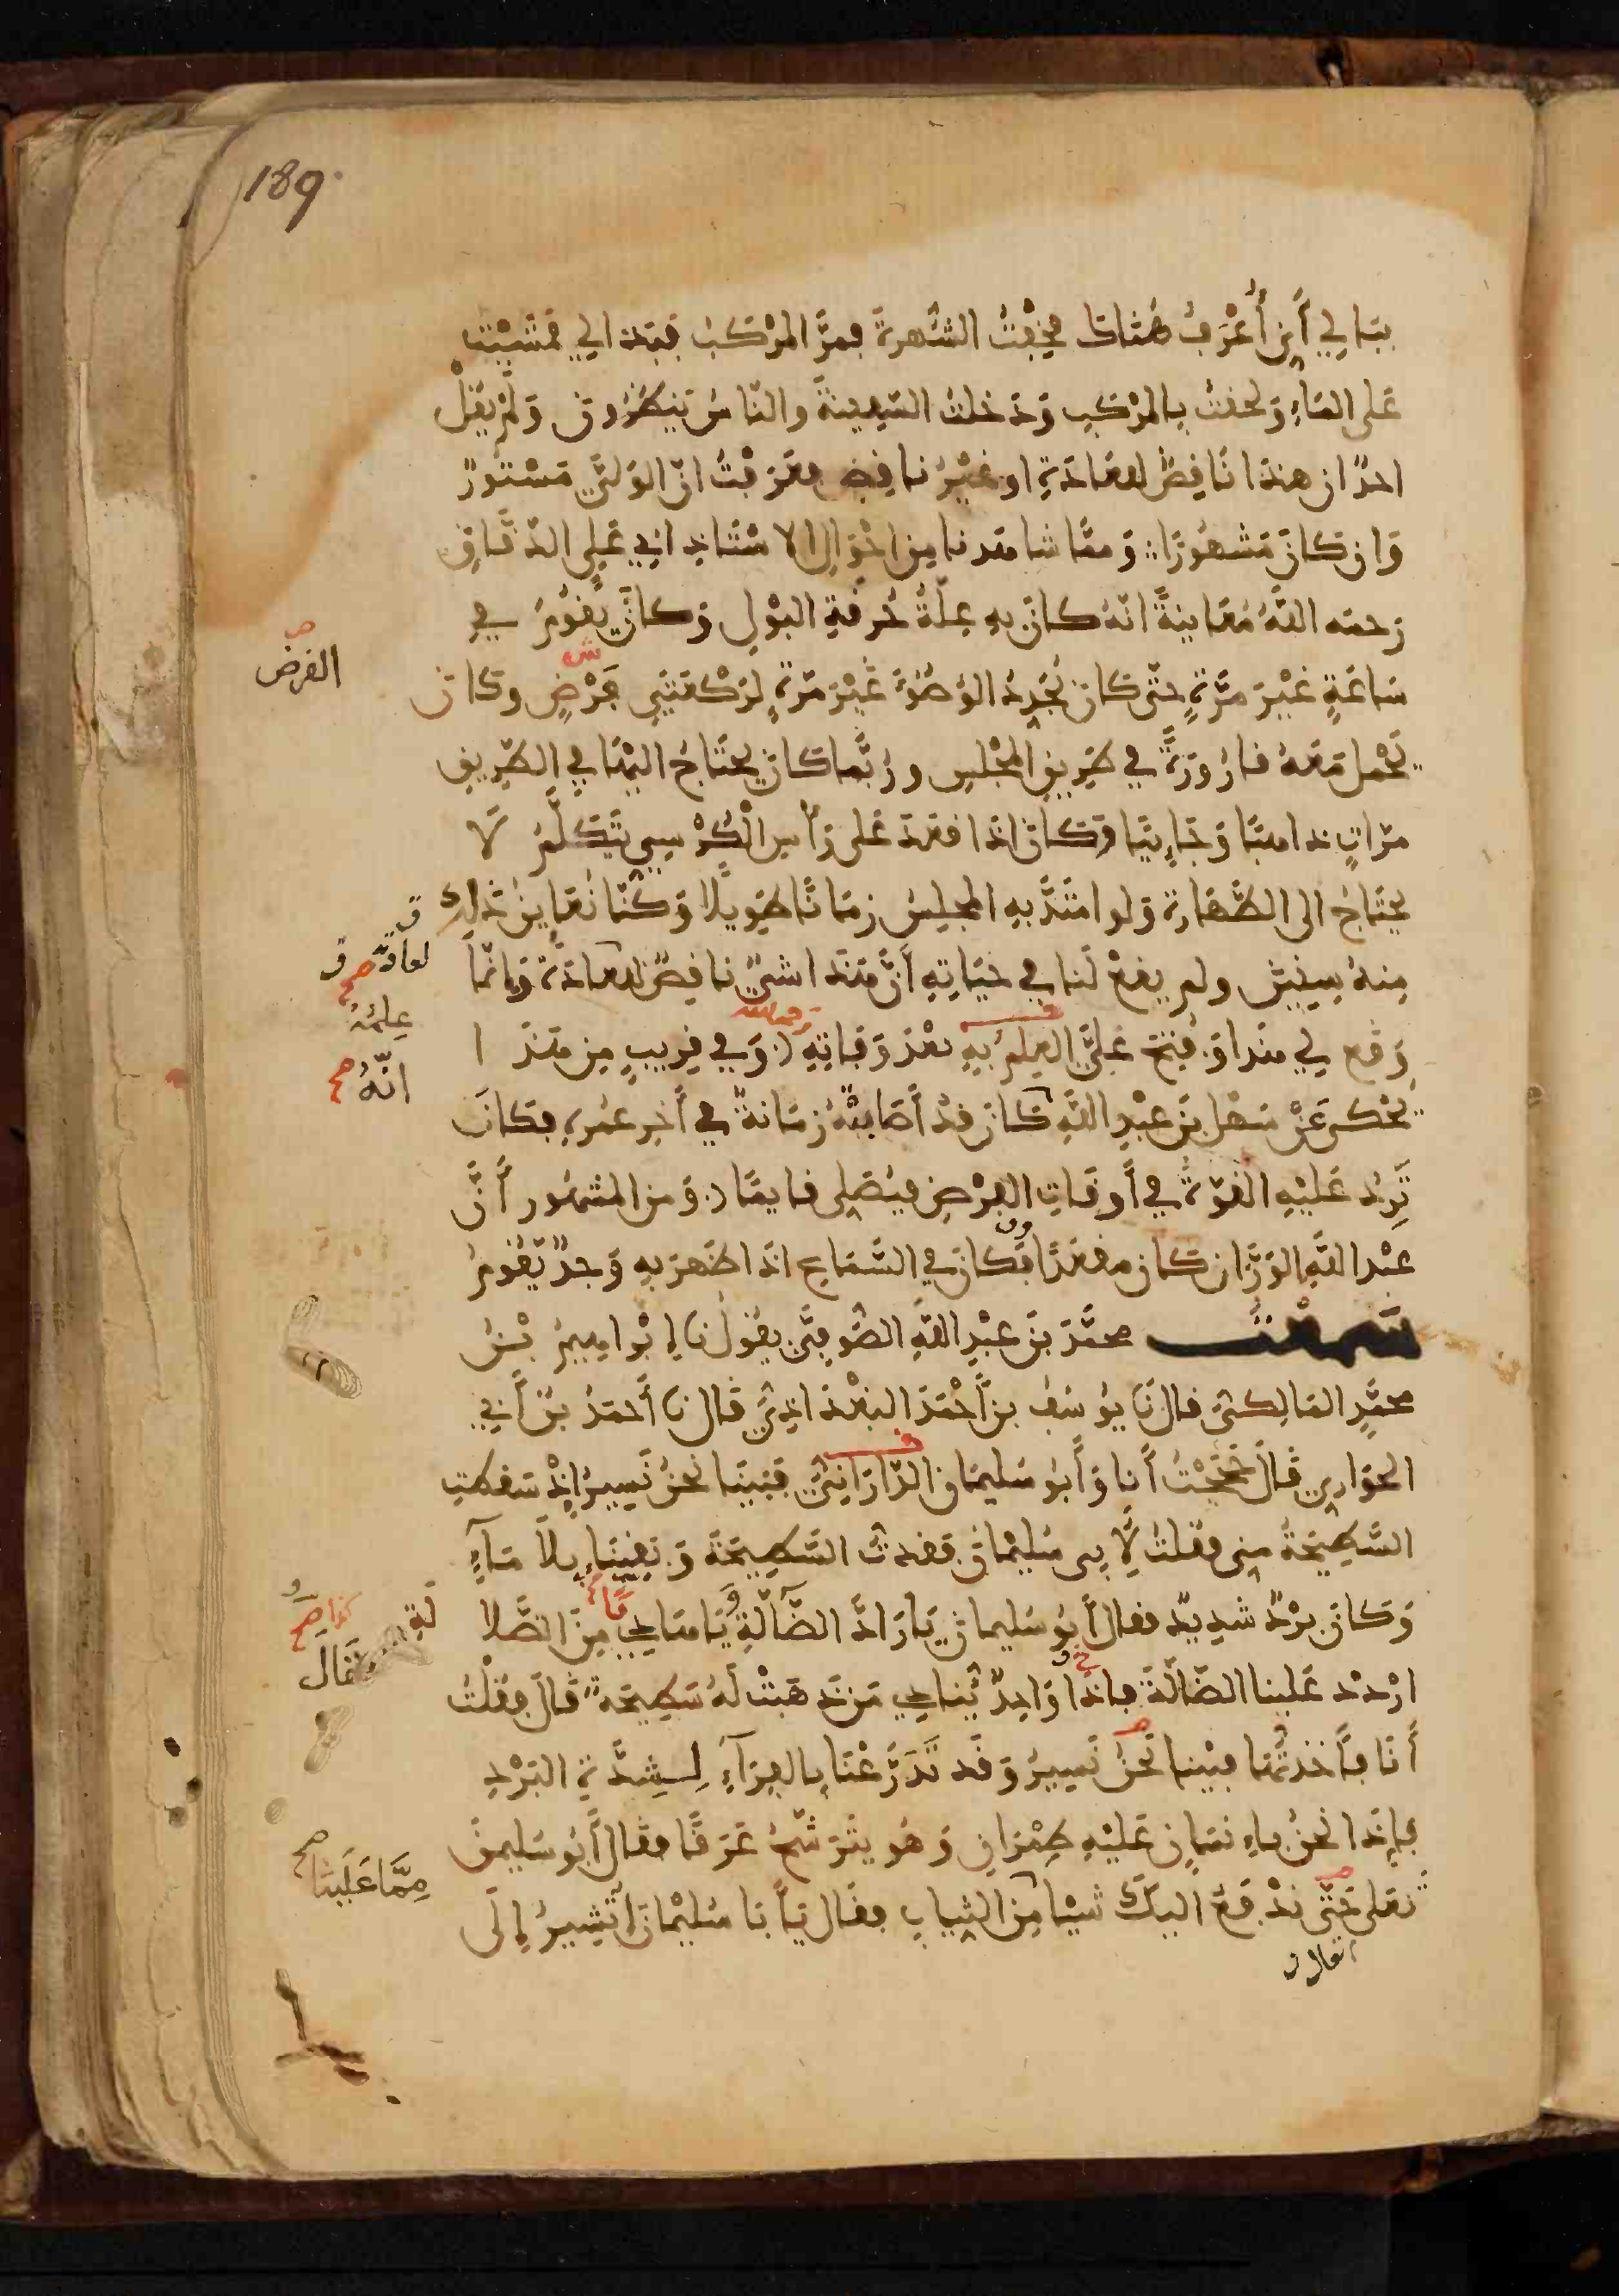 189
بتا لي أني أُعْرَف هُنَاك فخِفْتُ الشُّهرة فمرَّ المرْكَبُ فبَدا لي فمَشَيْتُ
عَلى المَاءِ وَلحقتُ بالمرْكَبِ وَدَخلتُ السَّفِينةَ والنَّاسُ ينظرُون وَلَمْ يقُلْ
احدٌ ان هذا نَاقِضٌ للعَادَةِ او غيْرُ ناقِضٍ فعَرَفْتُ انّ الوَلِيَّ مَسْتورٌ
وَان كَانَ مَشهُورًا وَممّا شاهَدنا مِن احْوَالِ الاسْتَاذِ ابي عَلي الدّقَّاقِ
رَحمَه اللَّهُ مُعَاينَةً انّهُ كانَ بِهِ عِلّةُ حُرقةِ البَوْلِ وَكانَ يقُومُ في
سَاعَةٍ غَيْرَ مَرَّةٍ حتّى كَانَ يُجَدِدُ الوُضُوءَ غَيْرَ مَرّةٍ لِرَكْعَتَي فَرْضٍ وكَان
يَحْمل مَعَهُ قارُورَةً في طرِيقِ المَجْلِسِ ورُبّما كان يحْتَاجُ اليْهَا في الطّرِيقِ
مرّاتٍ ذاهبًا وَجَائِيًا وَكَانَ اذا قعَدَ عَلى رَأسِ الْكُرْسِيِ يَتَكَلَّمُ لَا
يحْتَاجُ الى الطّهَارَةِ وَلو امْتَدَّ بِهِ المجلِسُ زمَانًا طوِيلًا وَكُنّا نُعَاينُ ذلِك
مِنهُ سِنِينَ ولم يقعْ لَنا في حَيَاتِهِ أَنَّ هَذا شيْءٌ ناقِضٌ للعَادَةِ وَانّمَا
وَقع لِي هذا وَفُتِحَ عَليَّ العِلمُ بِهِ بعْدَ وَفاتِهِ رحمه الله وَفي قرِيبٍ مِن هَذا
يُحْكى عَنْ سَهْل بنِ عبْدِ اللّهِ كَانَ قدْ أَصَابتْهُ زمَانةٌ في أَخِرِ عمُرِهِ فكَانَ
تُرَدُ عَليْهِ القوّةُ في أَوقَاتِ الفرْضِ فيُصَلي قايمًا وَمن المشهُور أَنَّ
عبْدَ اللّهِ الوَزَّانَ كَانَ مقعَدًا وَكَانَ في السَّمَاعِ اذا ظهَرَ بِهِ وَجدٌ يَقُومُ
سَمعْتُ محمَّدَ بنَ عبْدِ اللّهِ الصُّوفيَّ يقُولُ نا إبْرَاهِيمُ بْنُ
محمَّدٍ المَالِكيّ قال نَا يوُسُفُ بنُ أَحْمَدَ البغْدَاذِيُّ قَال نا أَحمَدُ بنُ أَبي
الحَوَارِي قَالَ حجَجْتُ أَنا وَأَبُو سُليمَان الدَّارَانِيُّ فبَينَا نحْنُ نَسِيرُ إِذْ سَقطتِ
السَّطِيحَةُ مِنِي فقُلتُ لأَبِي سُليْمَانَ فقدتُ السَّطِيحَةَ وَبَقِينَا بِلَا مَآءٍ
وَكَانَ بَرْدٌ شَدِيدٌ فقال أَبُو سُليمان يَا رَادَّ الضَّآلَّةِ وَيَا هَادِي مِنَ الضَّلا
ارْدُدْ عَلينا الضَّالَّةَ فإذا وَاحِدٌ يُنَادِي مَن ذَهَبَتْ لَهُ سَطِيحَة قَالَ فقُلْتُ
أَنَا فأَخَذتُهَا فبيْنا نَحْنُ نَسِيرُ وَقَد تَدَرَّعْنَا بالفِرَآءِ لِشِدَّةِ البَرْدِ
فإِذَا نحْنُ بإنسَانٍ عَليْهِ طِمْرَانِ وَهُوَ يَتَرَشّحُ عَرَقًا فقَالَ أَبُو سُليمٰن
تعَلَ حَتّى نَدْفَعَ اليكَ شَيْا مِنَ الثِيابِ فقَال يَأَبَا سُليْمَانَ أَتُشِيرُ إِلَى
الفرض صح
لعادة صح
علمه
انّهُ صح
لةِ
فَقَالَ
مِمَّا عَلَيْنَا صح